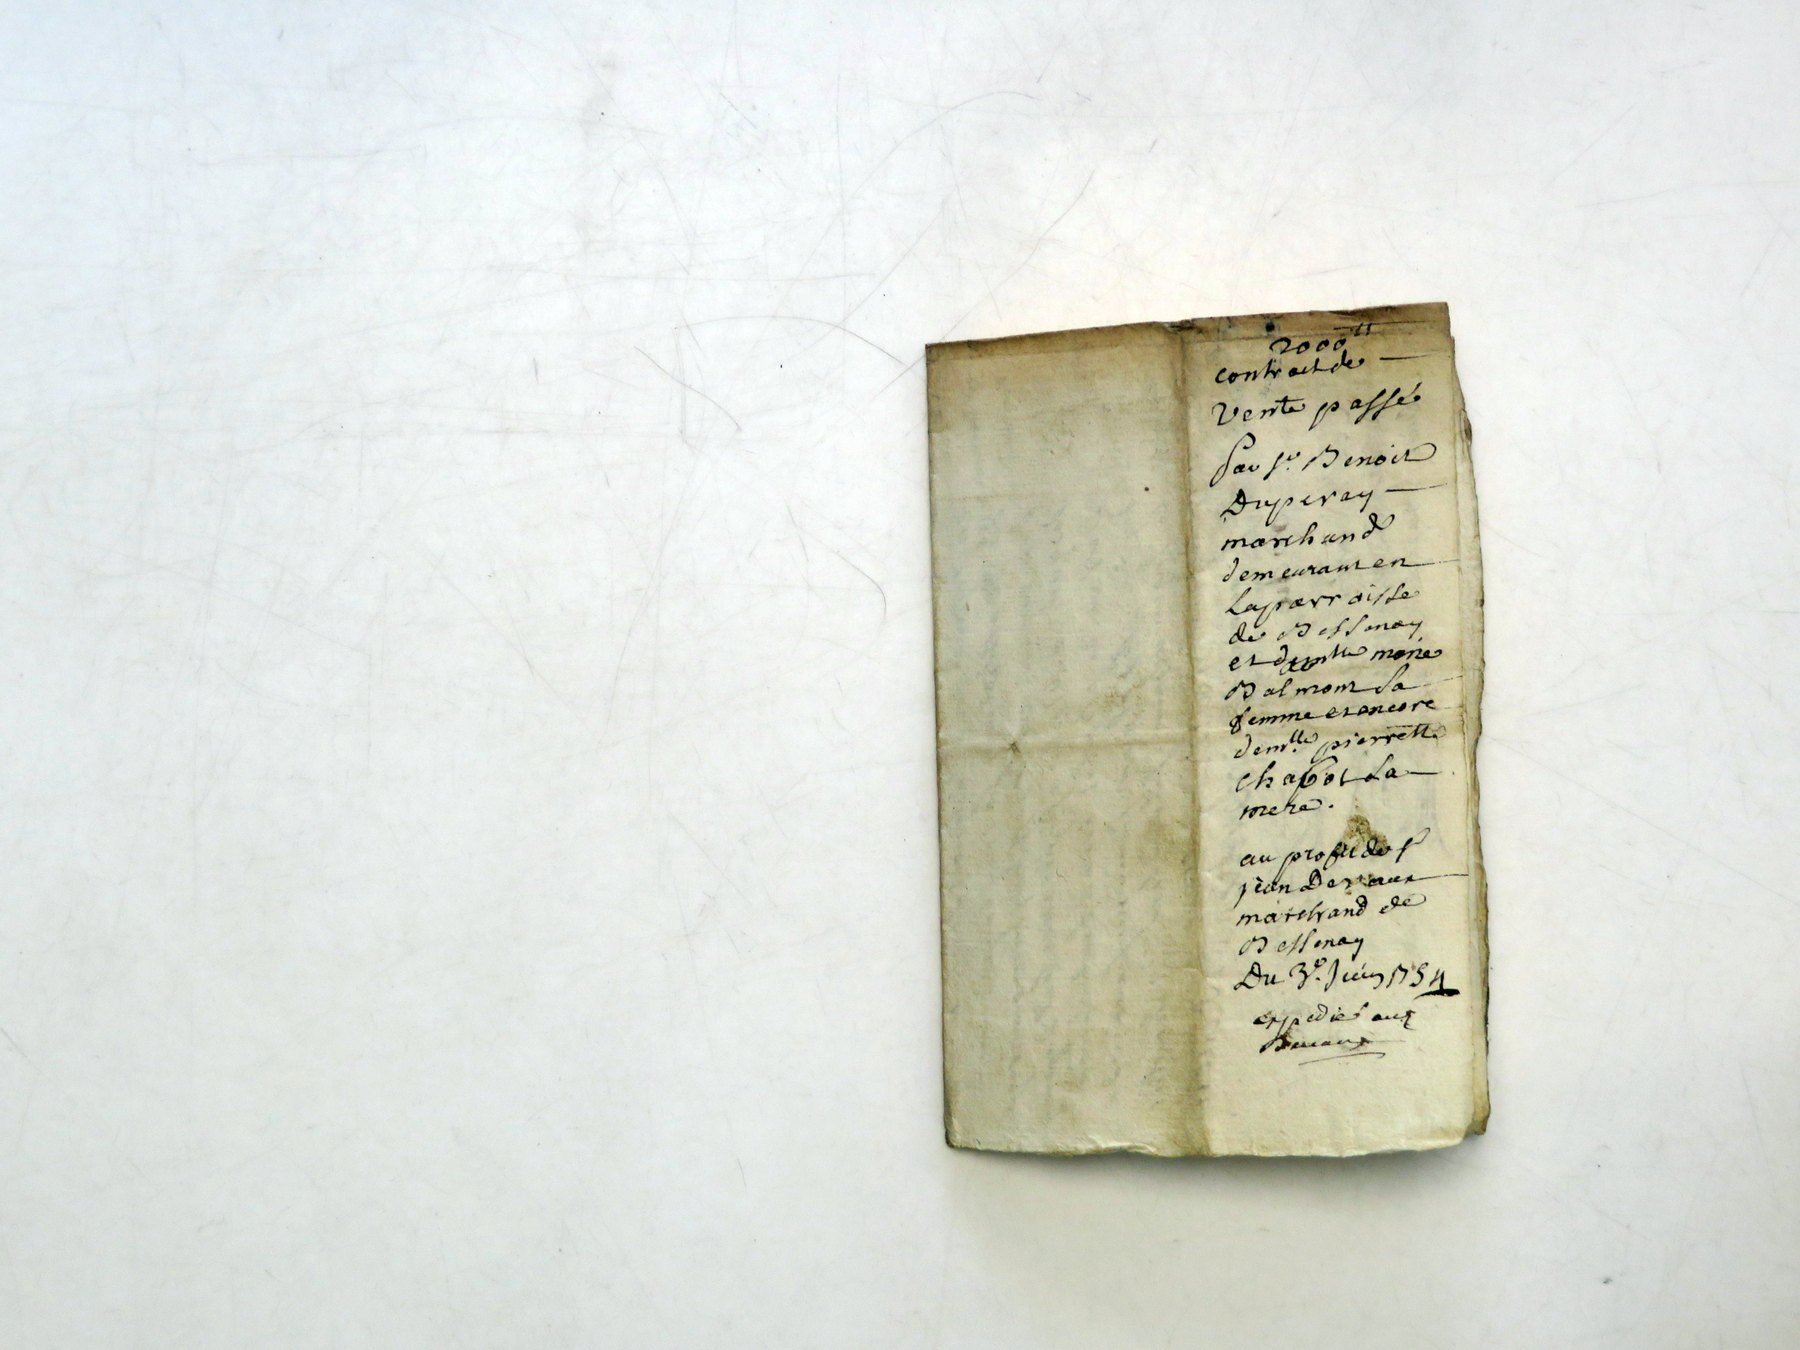 2000ᵗᵗ
contract de
Vente passé
Par Sr. Benoit
Duperay
marchand
demeurant en
La parroisse
de Bessenay
et demlle marie
Balmont Sa
femme et encore
demlle. pierrette
Chabot Sa
mere.
au profit de Sr
jean Deveaux
marchand de
Bessenay
Du 3e. Juin 1754
expedié aux